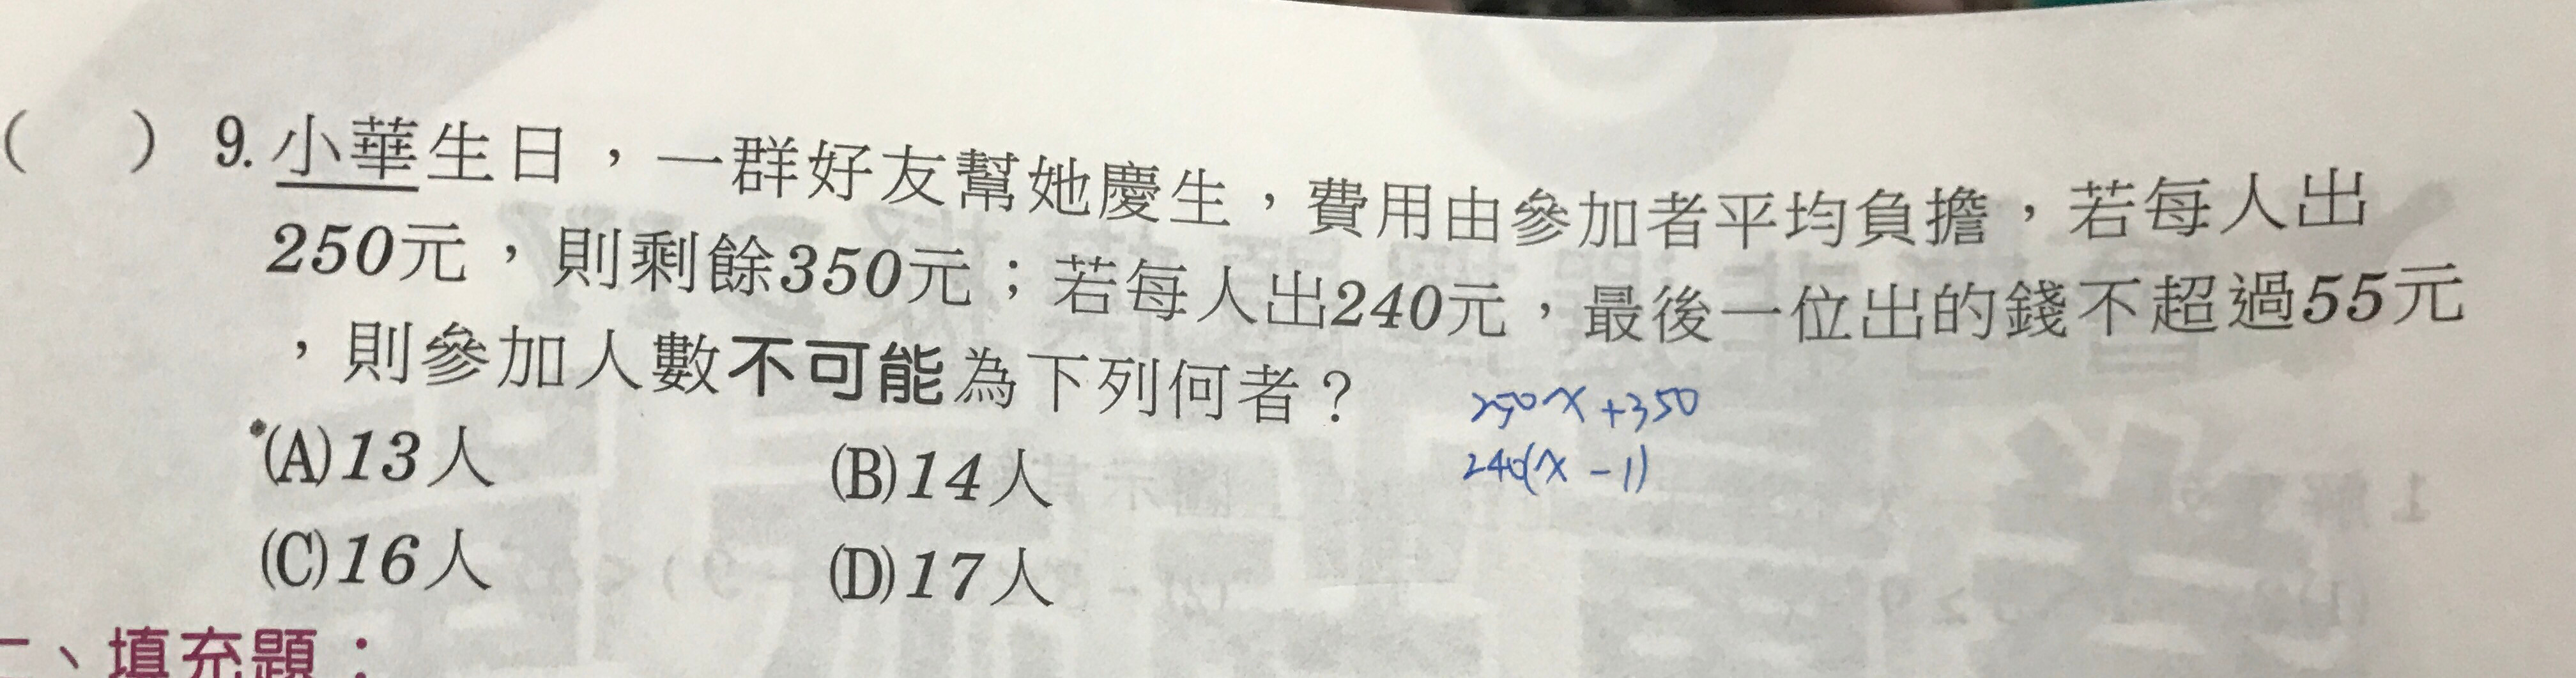 ( ) 9. 小華生日，一群好友幫她慶生，費用由參加者平均負擔，若每人出
250元，則剩餘350元；若每人出240元，最後一位出的錢不超過55元
，則參加人數不可能為下列何者？
250x+350
240(x-1)
(A)13人 (B)14人
(C)16人 (D)17人
二、填充題：